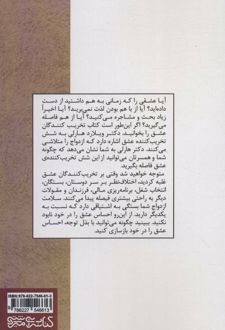 آیا عشقی را که زمانی به هم داشتید از دست
داده‌اید؟ آیا از با هم بودن لذت نمی‌برید؟ آیا اخیراً
زیاد بحث و مشاجره می‌کنید؟ آیا از هم فاصله
می‌گیرید؟ اگر این‌طور است کتاب تخریب کنندگان
عشق را بخوانید. دکتر ویلارد هارلی به شش
تخریب‌کننده عشق اشاره دارد که ازدواج را متلاشی
می‌کنند. دکتر هارلی به شما نشان می‌دهد که چگونه
شما و همسرتان می‌توانید از این شش تخریب‌کننده‌ی
عشق فاصله بگیرید.
متوجه خواهید شد وقتی بر تخریب‌کنندگان عشق
غلبه کردید، اختلاف‌نظر بر سر دوستان، بستگان،
انتخاب شغل، برنامه‌ریزی مالی، فرزندان و مقولات
دیگر به راحتی بیشتری فیصله پیدا می‌کند. سلامت
ازدواج شما بستگی به اشتیاقی دارد که نسبت به
یکدیگر دارید. از این‌رو احساس عشق را در خود نابود
نکنید. ببینید چگونه می‌توانید با بذل توجه، احساس
عشق را در خود بازسازی کنید.
ISBN: 978-622-7546-61-3
9 786227 546613